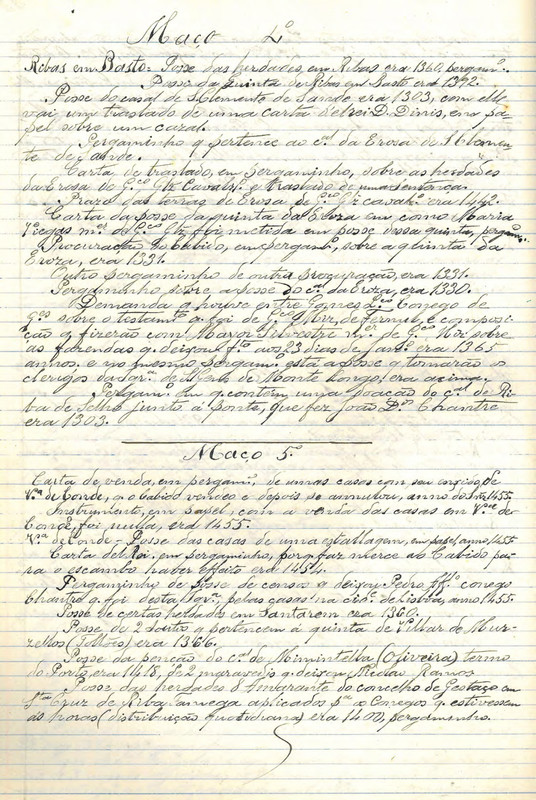 Maço 4º
Ribas em Basto = Posse das herdades, em Ribas era 1360, pergamº.
Posse da quinta de Ribas em Basto era 1392.
Posse do casal de S. Clemente de Sande, era 1303, com elle
vai um traslado de uma carta d'elrei D. Dinis, em pa-
pel sobre um cazal.
Pergaminho q pertence ao c.al da Eroza de S. Clemen-
te de Sande.
Carta de traslado, em pergaminho, sobre as herdades
da Erosa de G.co Glz Cavalr.º q traslado de uma sentença.
Prazo das terras de Erosa de G.co Glz cavalr.º era 1442.
Carta da posse da quinta da Eroza em como Maria
Viegas m.er de G.co Glz foi metida em posse dessa quinta, pergam.º
Procuração do Cabido, em pergam.º, sobre a quinta da
Eroza, era 1331.
Outro pergaminho de outra procuração, era 1331.
Pergaminho sobre a posse do c.al da Eroza, era 1330.
Demanda q houve entre Gomes Conego de
G.es sobre o testam.to q foi de G.co Miz, de Fermil e composi-
ção q fizerão com Maior Silvestre m.er de G.co Miz sobre
as fazendas q. deixou f.ta aos 23 dias de Jan.º era 1365
annos. e no mesmo pergam.º está a posse q tomarão os
clerigos da Igr.ª de de Monte Longo, era acima.
Pergam. em q. contem uma doação do c.al de Ri-
ba de Selho junto á ponte, que fez João D.es Chantre
era 1303.
Maço 5.º
Carta de venda, em pergam.º, de umas casas com seu enxido, de
V.ª de Conde, q o cabido vendeo e depois se annulou, anno do 1455.
Instrumento, em papel, com a venda das casas em V.ª de
Conde, foi nulla, era 1455.
V.ª de Conde - Posse das casas de uma estallagem, em papel, anno 1455.
Carta del Rei, em pergaminho, porq faz merce ao Cabido pa-
ra o escambo haver effeito era 1454.
Pergaminho de Posse de censos q deixou Pedro Aff.º conego
Chantre q. foi desta Igr.ª, pelas casas na cid.e de Lisboa, anno 1455.
Posse de certas herdades em Santarem era 1360.
Posse de 2 q pertencem á quinta de Vilhar de Mur-
zellos era 1366.
Posse da penção do c.al de Mimintelha (Oliveira) termo
do Porto, era 1418, de 2 maravedis q deixou Ramos
Posse das herdades d'Amarante do concelho de Gestaço em
S.ta Cruz de Riba Tamega aplicados p.ª os Conegos q. estivessem
ás horas (distribuição quotidiana) era 1400, pergaminho.